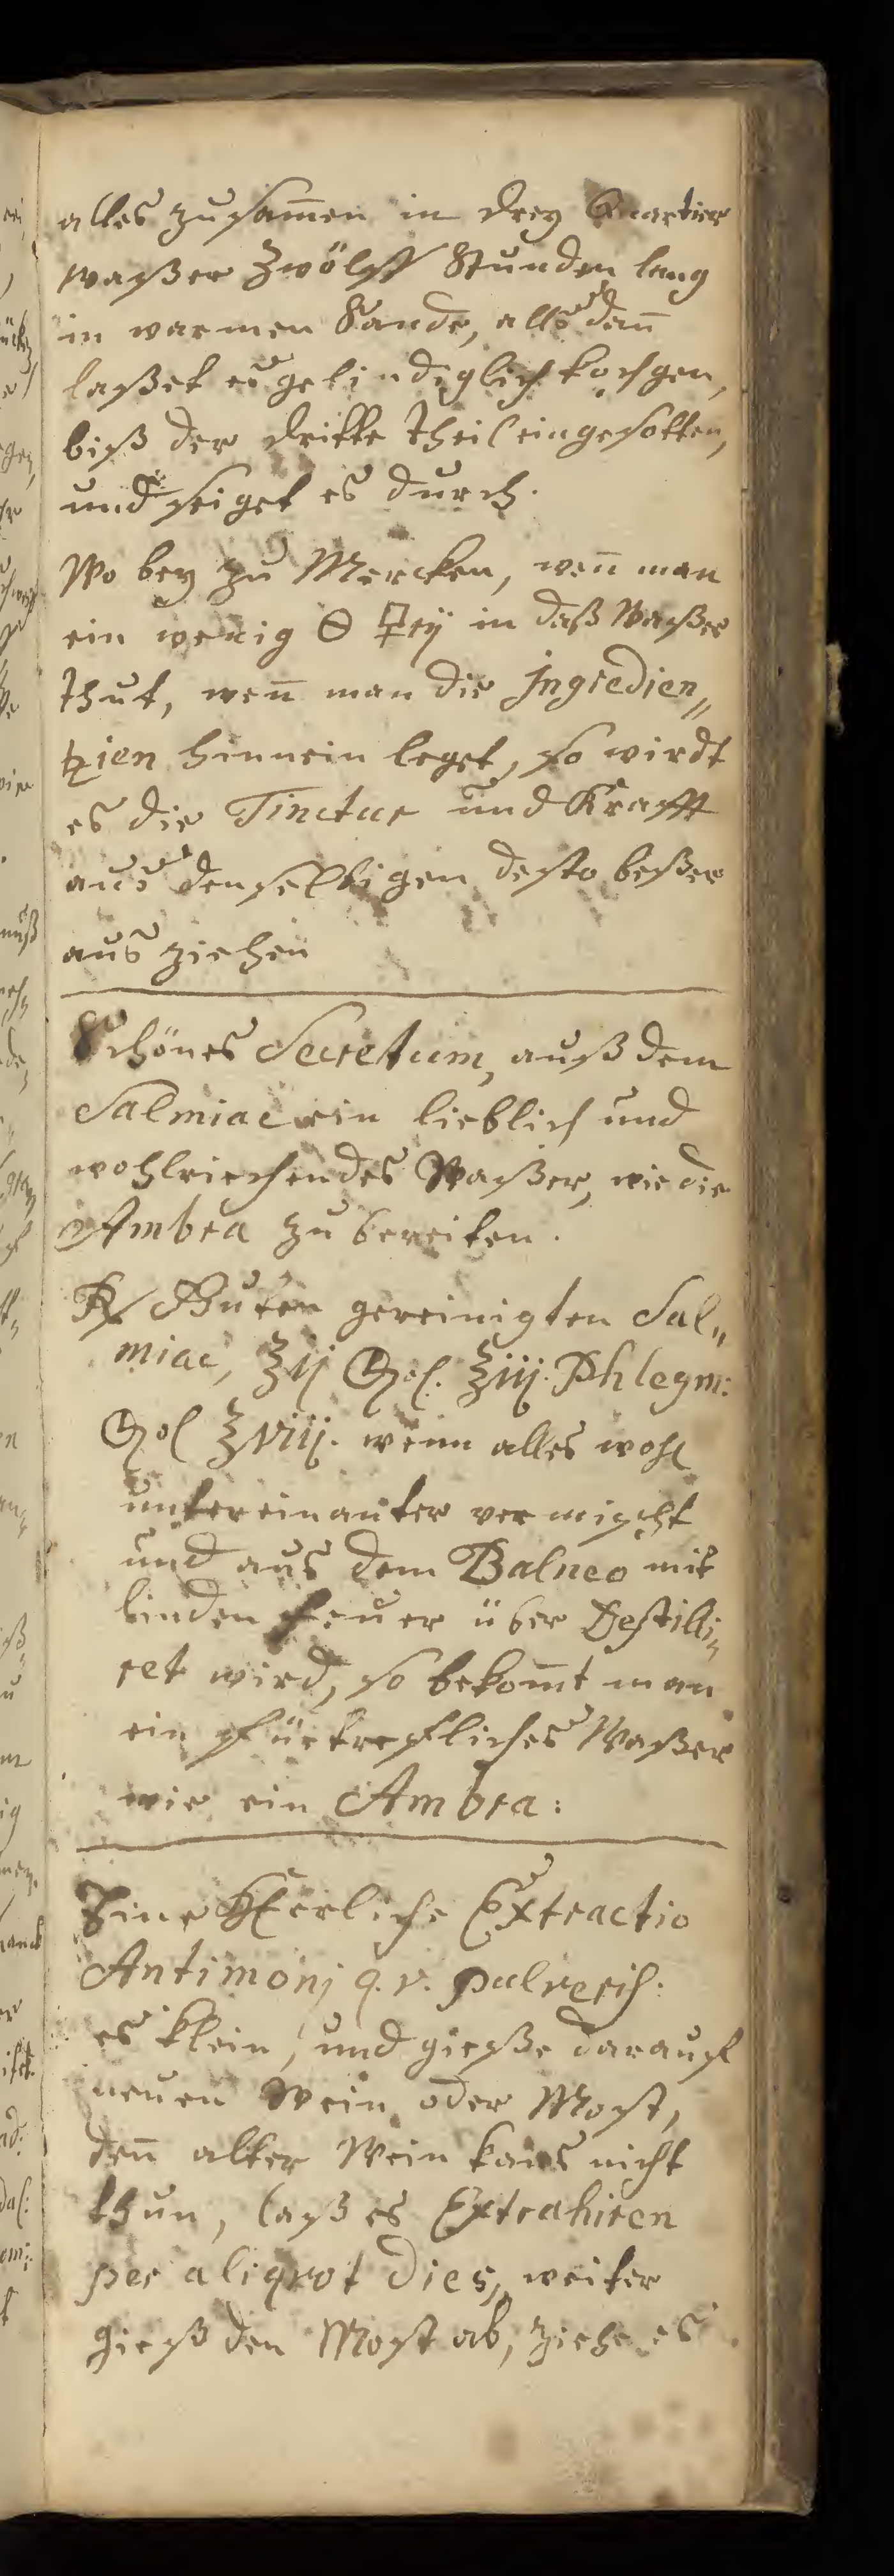 alles zusam̅en in drey Quartier
waßer Zwölff Stunden lang
in warmen Sande, alß dan̅
laßet es gelindiglich kochgen,
biß der dritte theil eingesotten,
und seiget es durch.
Wo bey zu Mercken, wen̅ man
ein wenig 🜔 🜿rij in daß Waßer
thut, wen̅ man die Ingredien„
tzien hinnein leget, so wirdt
es die Tinctur und Krafft
aus denselbigen desto beßer
aus ziehen
Schönes Secretum, auß dem
Salmiac ein lieblich und
wohlriechendes Waßer, wie die
Ambra zu bereiten.
℞ Guten gereinigten Sal„
miac, ℥ij ℥iij. Phlegm:
℥viij. wenn alles wohl
untereinanter vermischt
und aus dem Balneo mit
linden feuer über Destilli„
ret wird, so bekom̅t man
ein fürtrefliches Waßer
wie ein Ambra:
Eine Herliche Extractio
Antimonj q. v. pulveris:
es klein, und gieße darauf
neuen Wein oder Most,
den̅ alter Wein kans nicht
thun, laß es Extrahiren
per aliqvot dies, weiter
gieß den Most ab, ziehe es